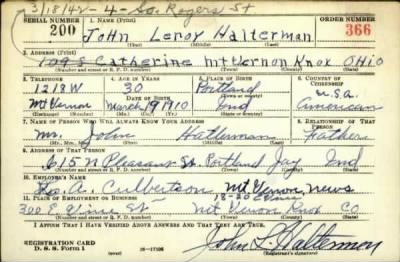 3/18/42-4-So. Rogers St
SERIAL NUMBER 1. NAME (Print) ORDER NUMBER
200 John Leroy Halterman 366
(First) (Middle) (Last)
2. ADDRESS (Print)
109 S Catherine Mt Vernon Knox OHIO
(Number and street or R. F. D. number) (Town) (County) (State)
3. TELEPHONE 4. AGE IN YEARS 5. PLACE OF BIRTH 6. COUNTRY OF CITIZENSHIP
1218W 30 Portland U.S.A.
DATE OF BIRTH (Town or county)
Mt Vernon March 19 1910 Ind American
(Exchange) (Mo.) (Day) (Yr.) (State or country)
7. NAME OF PERSON WHO WILL ALWAYS KNOW YOUR ADDRESS 8. RELATIONSHIP OF THAT PERSON
Mr. John Halterman Father
(Mr., Mrs., Miss) (First) (Middle) (Last)
9. ADDRESS OF THAT PERSON
615 N Pleasant St. Portland Jay Ind
(Number and street or R. F. D. number) (Town) (County) (State)
10. EMPLOYER'S NAME
A. Culbertson Mt Vernon News
11. PLACE OF EMPLOYMENT OR BUSINESS 18-20 E Vine
300 E Vine St Mt Vernon Knox CO
(Number and street or R. F. D. number) (Town) (County) (State)
I AFFIRM THAT I HAVE VERIFIED ABOVE ANSWERS AND THAT THEY ARE TRUE.
REGISTRATION CARD
D. S. S. Form 1 16-17105 John L. Halterman
(Registrant's signature)